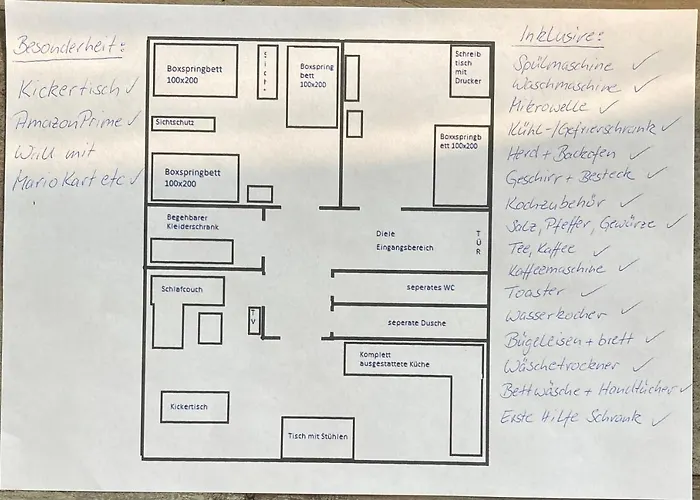 Besonderheit:
Kickertisch ✓
AmazonPrime ✓
WiiU mit
MarioKart etc ✓
Boxspringbett
100x200
Boxspring
bett
100x200
Schreib
tisch
mit
Drucker
Sichtschutz
Boxspringbett
100x200
Boxxspringb
ett 100x200
Begehbarer
Kleiderschrank
Diele
Eingangsbereich
TÜR
Schlafcouch
TV
seperates WC
seperate Dusche
Komplett
ausgestattete Küche
Kickertisch
Tisch mit Stühlen
Inklusive:
Spülmaschine ✓
Waschmaschine ✓
Mikrowelle ✓
Kühl-/Gefrierschrank ✓
Herd + Backofen ✓
Geschirr + Besteck ✓
Kochzubehör ✓
Salz, Pfeffer, Gewürze ✓
Tee, Kaffee ✓
Kaffeemaschine ✓
Toaster ✓
Wasserkocher ✓
Bügeleisen + brett ✓
Wäschetrockner ✓
Bettwäsche + Handtücher ✓
Erste Hilfe Schrank ✓